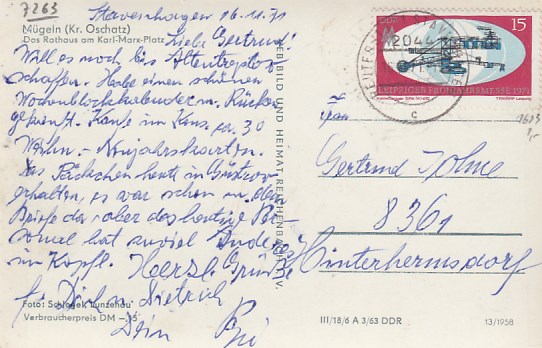 7263
Stavenhagen 16.11.71
Mügeln (Kr. Oschatz)
Das Rathaus am Karl-Marx-Platz
Liebe Gertrud!
Will es noch bis Altentreptow
schaffen. Habe einen schönen
Wochenblockkalender m. Rücken
gekauft. Kaufe im Kons. ca. 30
Weihn.- Neujahrskarten.
Das Päckchen heute in Güstrow
erhalten, es war schon ein
Briefe da, aber das heutige Per-
sonal hat soviel
im Kopf. Herzl. Grüße
f. Dich u. Dietrich
Dein
Foto: Schlegel, Lunzenau
Verbraucherpreis DM -,15
VERBILD UND HEIMAT REICHENBACH I. V.
DDR
15
LEIPZIGER FRÜHJAHRSMESSE 1971
2044
REUTERSTADT STAVENHAGEN
c
1653
Frau
Gertrud Johne
8361
Hinterhermsdorf
III/18/6 A 3/63 DDR
13/1958